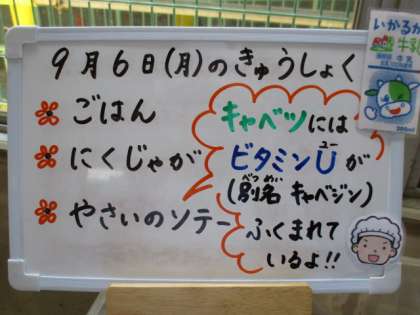 9月6日(月)のきゅうしょく
ごはん
にくじゃが
やさいのソテー
キャベツには
ビタミンUが
ユー
(別名 キャベジン)
べつめい
ふくまれて
いるよ!!
いかるが
牛乳